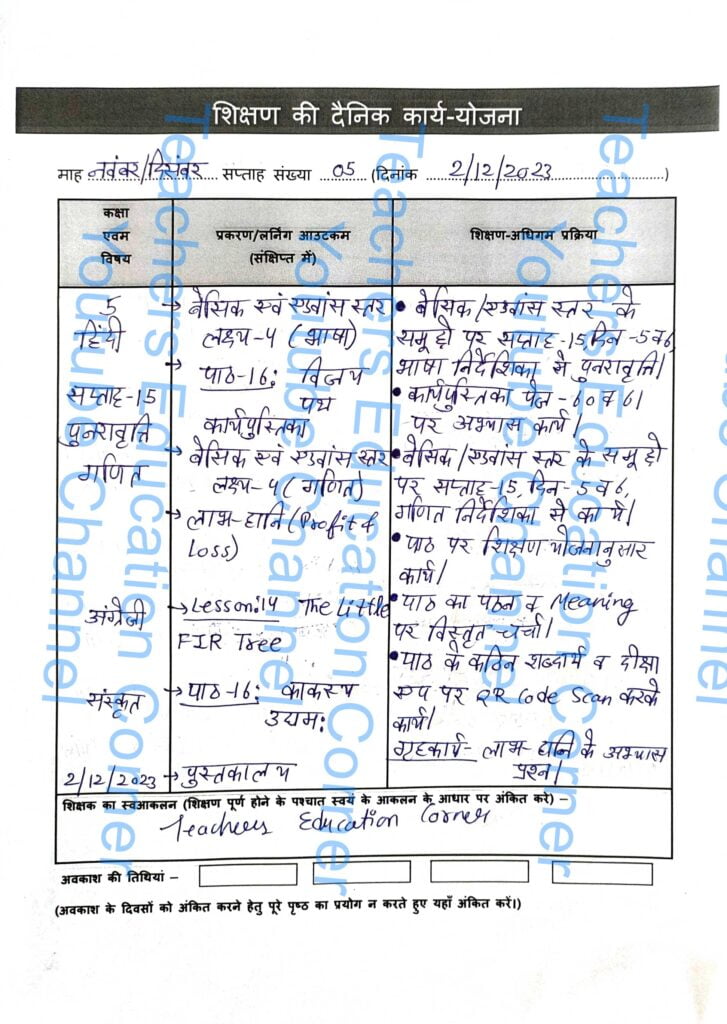 शिक्षण की दैनिक कार्य-योजना
माह नवंबर/दिसंबर सप्ताह संख्या 05 (दिनांक 2/12/2023)
कक्षा
एवम
विषय
प्रकरण/लर्निग आउटकम
(संक्षिप्त में)
शिक्षण-अधिगम प्रक्रिया
5
हिंदी
सप्ताह-15
पुनरावृत्ति
→ बेसिक एवं एडवांस स्तर
लक्ष्य-4 (भाषा)
→ पाठ-16: विजय
पथ
कार्यपुस्तिका
• बेसिक/एडवांस स्तर के
समूहों पर सप्ताह-15, दिन-5 व 6,
भाषा निर्देशिका से पुनरावृत्ति।
• कार्यपुस्तिका पेज-60 व 61
पर अभ्यास कार्य।
गणित
→ बेसिक एवं एडवांस स्तर
लक्ष्य-4 (गणित)
→ लाभ-हानि (Profit &
Loss)
• बेसिक/एडवांस स्तर के समूहों
पर सप्ताह-15, दिन-5 व 6,
गणित निर्देशिका से कार्य।
• पाठ पर शिक्षण योजनानुसार
कार्य।
अंग्रेजी
→ Lesson:14 The Little
FIR Tree
• पाठ का पठन व Meaning
पर विस्तृत चर्चा।
संस्कृत
→ पाठ-16: काकस्य
उद्यम:
• पाठ के कठिन शब्दार्थ व दीक्षा
एप पर QR Code Scan करके
कार्य।
गृहकार्य- लाभ-हानि के अभ्यास
प्रश्न।
2/12/2023 → पुस्तकालय
शिक्षक का स्वआकलन (शिक्षण पूर्ण होने के पश्चात स्वयं के आकलन के आधार पर अंकित करे) –
Teachers Education Corner
अवकाश की तिथियां –
(अवकाश के दिवसों को अंकित करने हेतु पूरे पृष्ठ का प्रयोग न करते हुए यहाँ अंकित करें।)
Teachers Education Corner
Youtube Channel
Teachers Education Corner
Youtube Channel
Teachers Education Corner
Youtube Channel